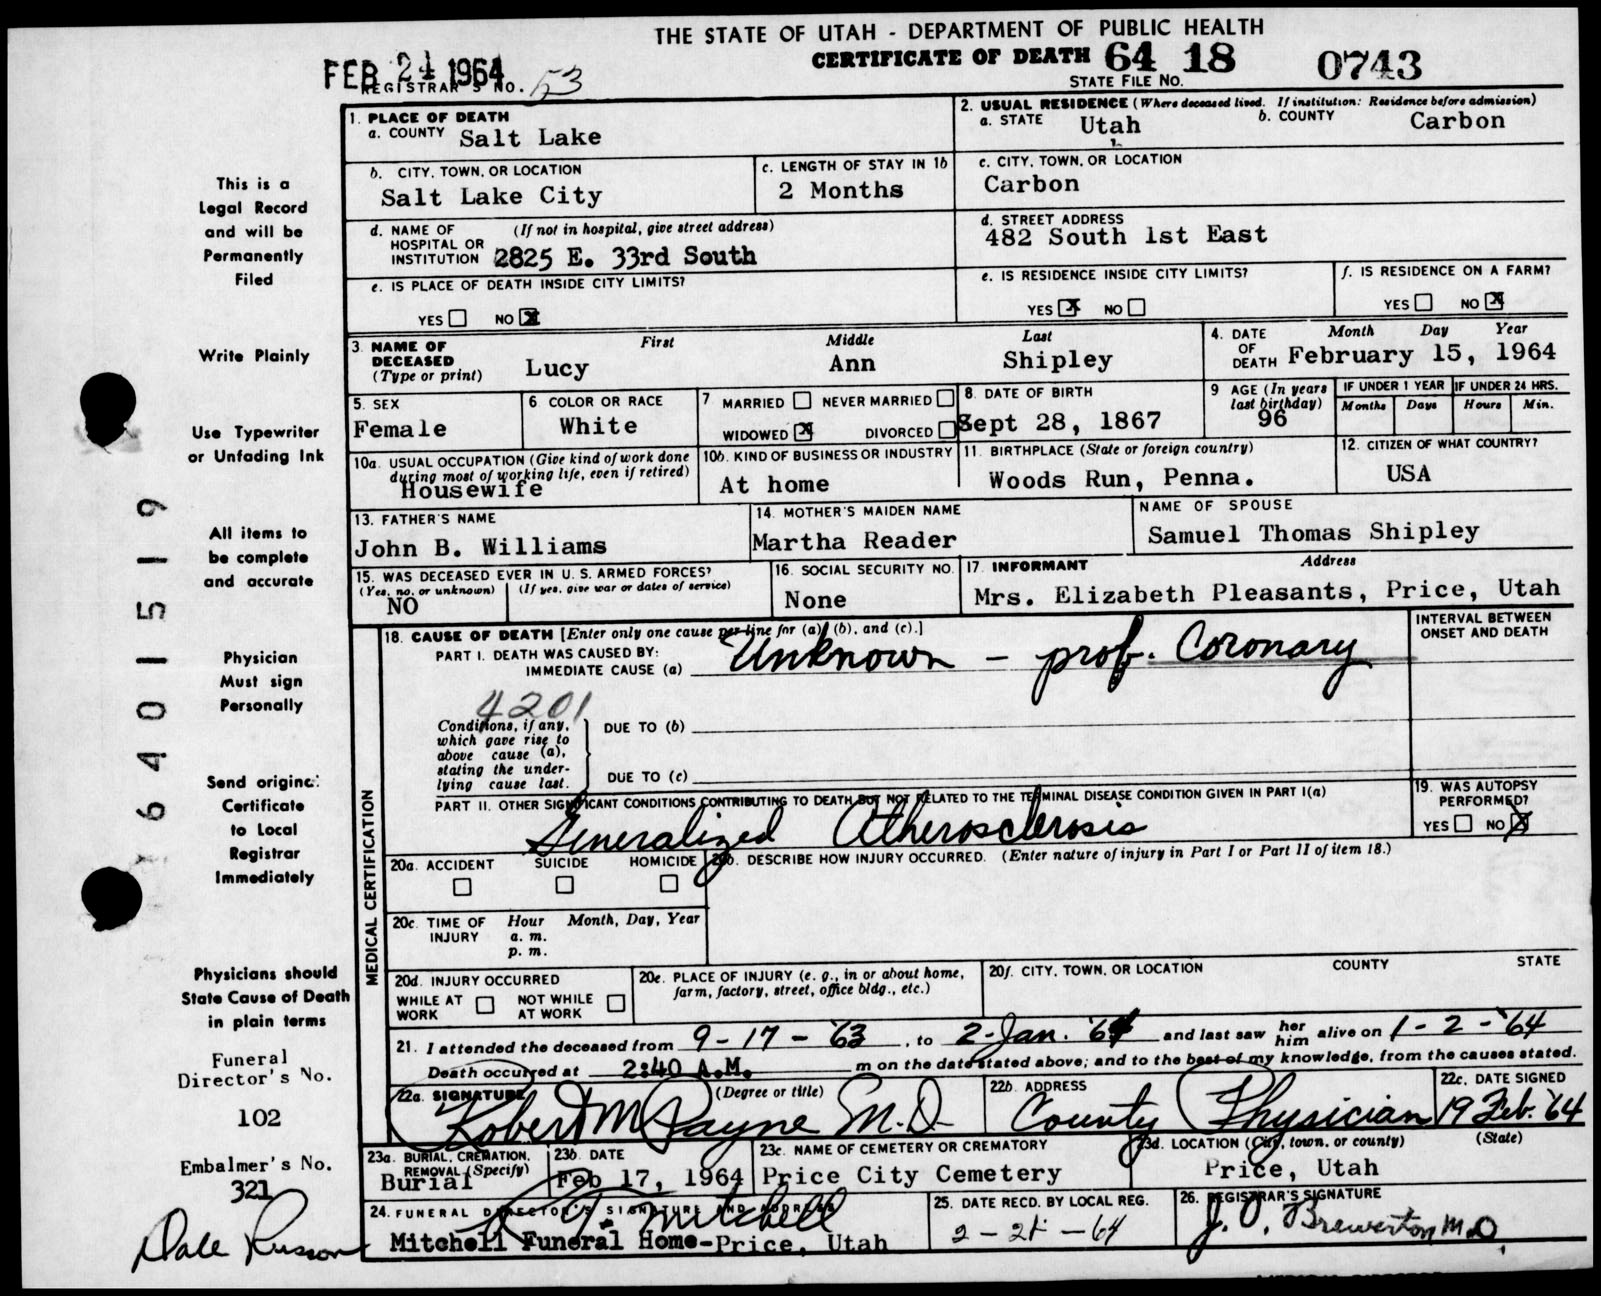 THE STATE OF UTAH - DEPARTMENT OF PUBLIC HEALTH
CERTIFICATE OF DEATH 64 18 0743
STATE FILE NO.
FEB 24 1964
REGISTRAR'S NO. 53
1. PLACE OF DEATH
a. COUNTY Salt Lake
2. USUAL RESIDENCE (Where deceased lived. If institution: Residence before admission)
a. STATE Utah b. COUNTY Carbon
b. CITY, TOWN, OR LOCATION
Salt Lake City
c. LENGTH OF STAY IN 1b
2 Months
c. CITY, TOWN, OR LOCATION
Carbon
d. NAME OF HOSPITAL OR INSTITUTION (If not in hospital, give street address)
2825 E. 33rd South
d. STREET ADDRESS
482 South 1st East
e. IS PLACE OF DEATH INSIDE CITY LIMITS?
YES NO X
e. IS RESIDENCE INSIDE CITY LIMITS?
YES X NO
f. IS RESIDENCE ON A FARM?
YES NO X
3. NAME OF DECEASED (Type or print)
First Middle Last
Lucy Ann Shipley
4. DATE OF DEATH Month Day Year
February 15, 1964
5. SEX
Female
6 COLOR OR RACE
White
7 MARRIED NEVER MARRIED
WIDOWED X DIVORCED
8. DATE OF BIRTH
Sept 28, 1867
9 AGE (In years last birthday)
96
IF UNDER 1 YEAR IF UNDER 24 HRS.
Months Days Hours Min.
10a. USUAL OCCUPATION (Give kind of work done during most of working life, even if retired)
Housewife
10b. KIND OF BUSINESS OR INDUSTRY
At home
11. BIRTHPLACE (State or foreign country)
Woods Run, Penna.
12. CITIZEN OF WHAT COUNTRY?
USA
13. FATHER'S NAME
John B. Williams
14. MOTHER'S MAIDEN NAME
Martha Reader
NAME OF SPOUSE
Samuel Thomas Shipley
15. WAS DECEASED EVER IN U. S. ARMED FORCES?
(Yes, no, or unknown) (If yes, give war or dates of service)
NO
16. SOCIAL SECURITY NO.
None
17. INFORMANT Address
Mrs. Elizabeth Pleasants, Price, Utah
MEDICAL CERTIFICATION
18. CAUSE OF DEATH [Enter only one cause per line for (a), (b), and (c).]
INTERVAL BETWEEN ONSET AND DEATH
PART I. DEATH WAS CAUSED BY:
IMMEDIATE CAUSE (a) Unknown - prob. Coronary
4201
Conditions, if any, which gave rise to above cause (a), stating the underlying cause last.
DUE TO (b)
DUE TO (c)
PART II. OTHER SIGNIFICANT CONDITIONS CONTRIBUTING TO DEATH BUT NOT RELATED TO THE TERMINAL DISEASE CONDITION GIVEN IN PART I(a)
Generalized Atherosclerosis
19. WAS AUTOPSY PERFORMED?
YES NO X
20a. ACCIDENT SUICIDE HOMICIDE
20b. DESCRIBE HOW INJURY OCCURRED. (Enter nature of injury in Part I or Part II of item 18.)
20c. TIME OF INJURY Hour Month, Day, Year
a. m.
p. m.
20d. INJURY OCCURRED
WHILE AT WORK NOT WHILE AT WORK
20e. PLACE OF INJURY (e. g., in or about home, farm, factory, street, office bldg., etc.)
20f. CITY, TOWN, OR LOCATION COUNTY STATE
21. I attended the deceased from 9-17-'63, to 2-Jan. '64 and last saw her him alive on 1-2-'64
Death occurred at 2:40 A.M. m on the date stated above; and to the best of my knowledge, from the causes stated.
22a. SIGNATURE (Degree or title)
Robert M Payne M.D.
22b. ADDRESS
County Physician
22c. DATE SIGNED
19 Feb. '64
23a. BURIAL, CREMATION, REMOVAL (Specify)
Burial
23b. DATE
Feb 17, 1964
23c. NAME OF CEMETERY OR CREMATORY
Price City Cemetery
23d. LOCATION (City, town, or county) (State)
Price, Utah
24. FUNERAL DIRECTOR'S SIGNATURE AND ADDRESS
Mitchell
Mitchell Funeral Home-Price, Utah
25. DATE RECD. BY LOCAL REG.
26. REGISTRAR'S SIGNATURE
J. O. Brewerton M.D.
This is a
Legal Record
and will be
Permanently
Filed
Write Plainly
Use Typewriter
or Unfading Ink
All items to
be complete
and accurate
Physician
Must sign
Personally
Send original
Certificate
to Local
Registrar
Immediately
Physicians should
State Cause of Death
in plain terms
Funeral
Director's No.
102
Embalmer's No.
321
Dale
64015519